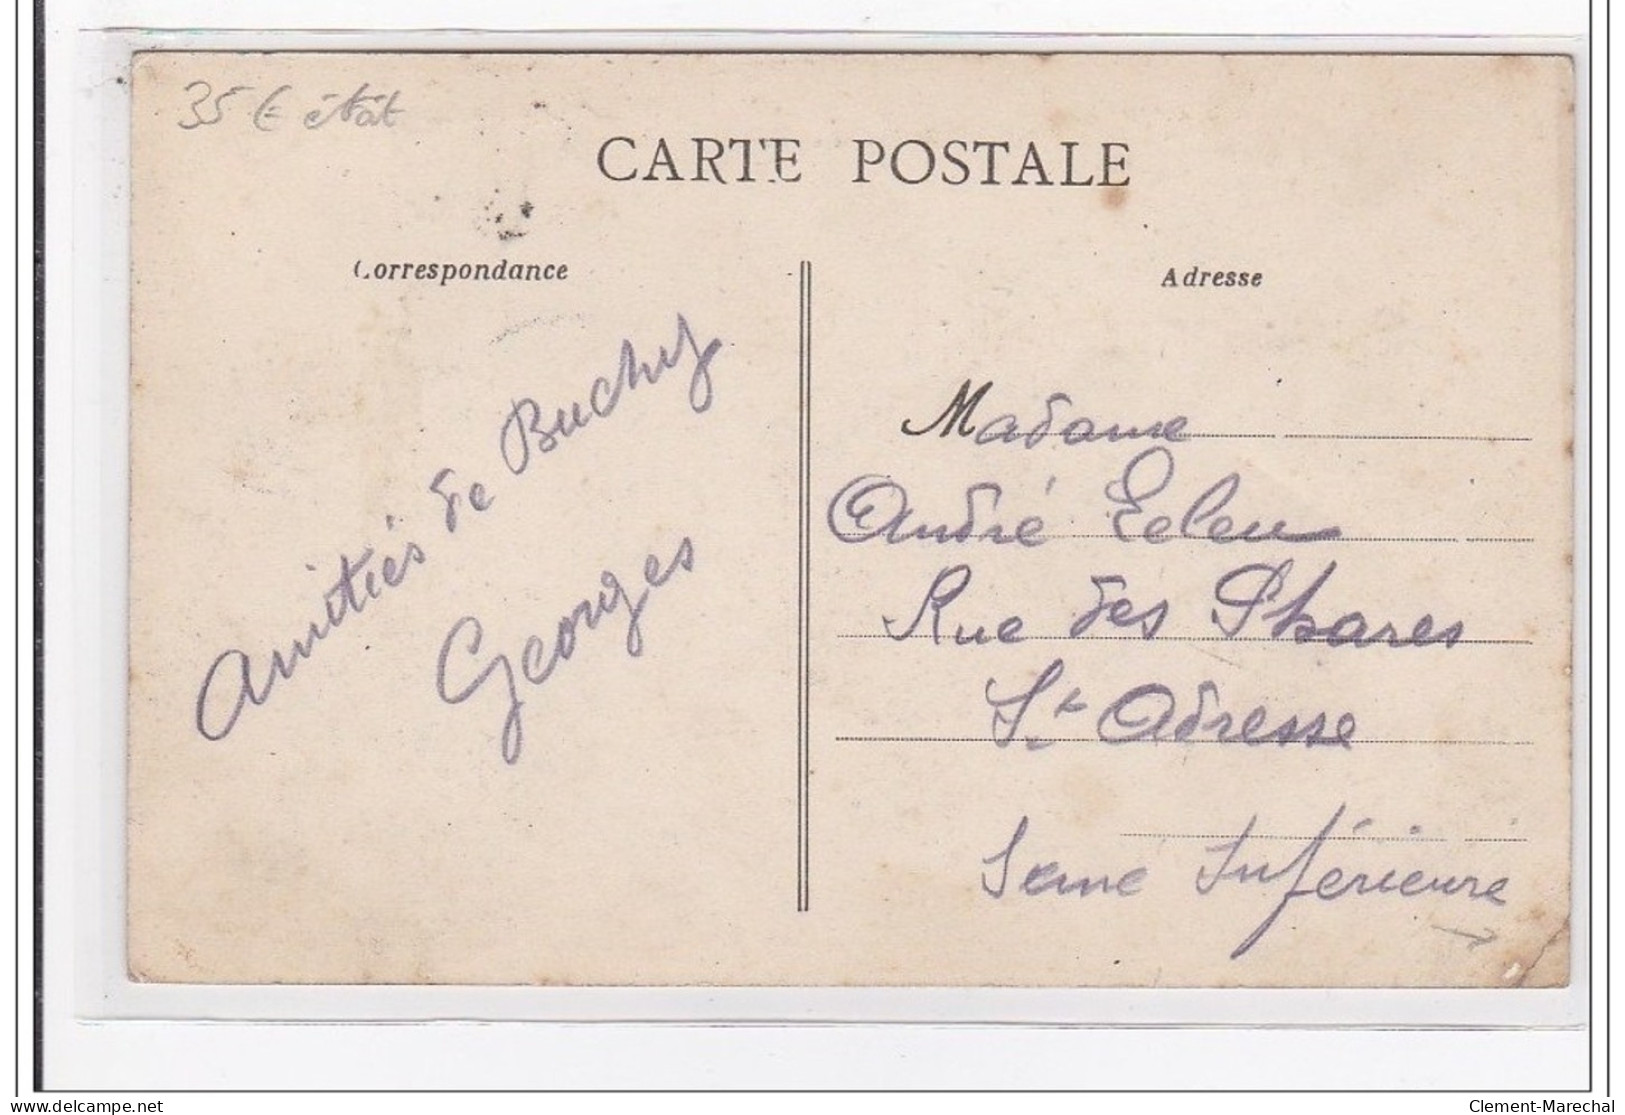 35 € état
CARTE POSTALE
Correspondance
Adresse
Amitiés de Buchy
Georges
Madame
André
Rue des Phares
Ste Adresse
Seine Inférieure
delcampe.net
Clement-Marechal